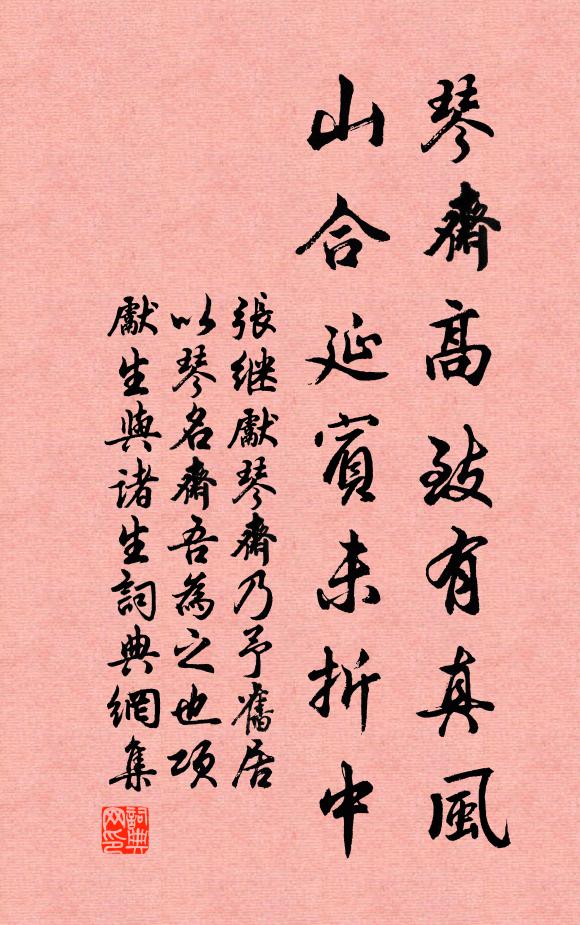 琴齋高致有真風
山合延賓未折中
張继獻琴齋乃予舊居
以琴名齋吾為之也項
獻生與诸生詞典網集
詞典
网印